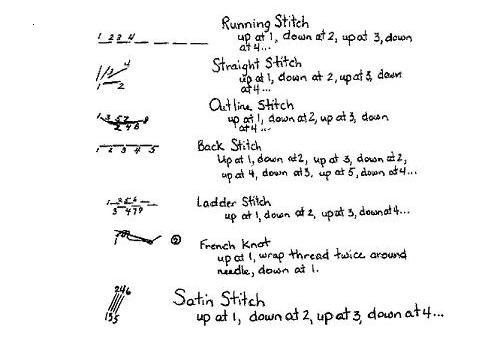 Running Stitch
1 2 3 4
up at 1, down at 2, up at 3, down
at 4...
Straight Stitch
4
1 3 2
up at 1, down at 2, up at 3, down
at 4...
Outline Stitch
1 3 5 7
2 4 6 8
up at 1, down at 2, up at 3, down
at 4...
Back Stitch
1 2 3 4 5
Up at 1, down at 2, up at 3, down at 2,
up at 4, down at 3, up at 5, down at 4...
Ladder Stitch
1 2 5 6
3 4 7
up at 1, down at 2, up at 3, down at 4...
French Knot
1
up at 1, wrap thread twice around
needle, down at 1.
Satin Stitch
2 4 6
1 3 5
up at 1, down at 2, up at 3, down at 4...